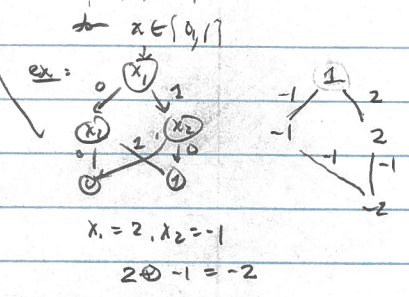 x ∈ {0,1}
ex:
x₁
0 1
x₂ x₂
0 1 1 0
0 1
x₁ = 2, x₂ = -1
2 ⊕ -1 = -2
1
-1 2
-1 2
-1 -1
-2